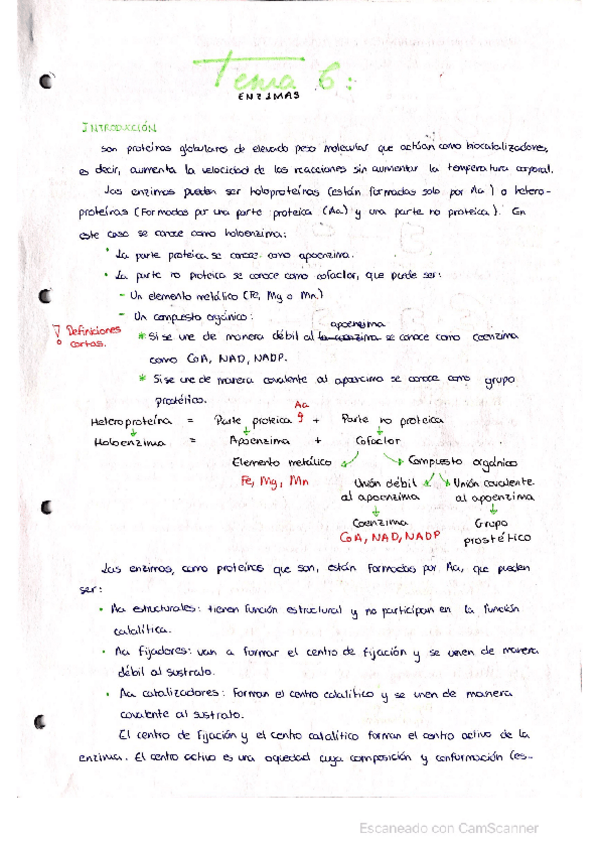 Tema 6:
ENZIMAS
INTRODUCCIÓN
Son proteínas globulares de elevado peso molecular que actúan como biocatalizadores,
es decir, aumenta la velocidad de las reacciones sin aumentar la temperatura corporal.
Las enzimas pueden ser holoproteínas (están formadas solo por Aa) o hetero-
proteínas (Formadas por una parte proteica (Aa) y una parte no proteica). En
este caso se conoce como holoenzima:
• La parte proteica se conoce como apoenzima.
• La parte no proteica se conoce como cofactor, que puede ser:
- Un elemento metálico (Fe, Mg o Mn)
- Un compuesto orgánico:
! Definiciones
cortas.
apoenzima
* Si se une de manera débil al la coenzima se conoce como coenzima
como CoA, NAD, NADP.
* Si se une de manera covalente al se conoce como grupo
prostético.
Aa
Heteroproteína = Parte proteica + Parte no proteica
Holoenzima = Apoenzima + Cofactor
Elemento metálico Compuesto orgánico
Fe, Mg, Mn Unión débil Unión covalente
al apoenzima al apoenzima
Coenzima Grupo
CoA, NAD, NADP prostético
Las enzimas, como proteínas que son, están formadas por Aa, que pueden
ser:
• Aa estructurales: tienen función estructural y no participan en la función
catalítica.
• Aa fijadores: van a formar el centro de fijación y se unen de manera
débil al sustrato.
• Aa catalizadores: forman el centro catalítico y se unen de manera
covalente al sustrato.
El centro de fijación y el centro catalítico forman el centro activo de la
enzima. El centro activo es una oquedad cuya composición y conformación (es-
Escaneado con CamScanner